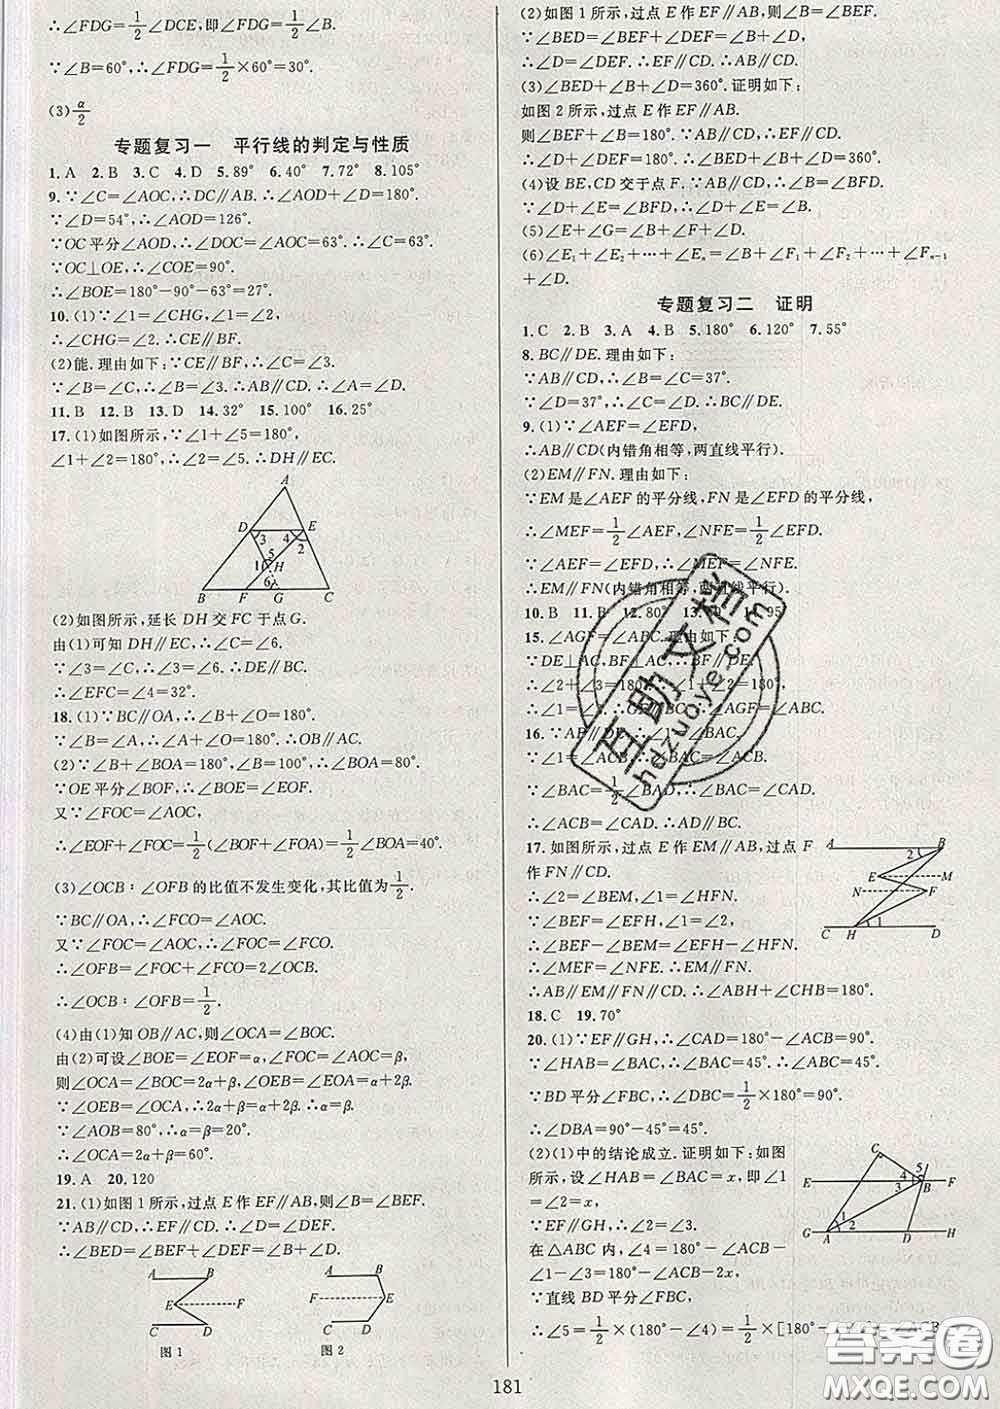 ∴∠FDG=1/2∠DCE,即∠FDG=1/2∠B.
∵∠B=60°,∴∠FDG=1/2×60°=30°.
(3)α/2
专题复习一 平行线的判定与性质
1.A 2.B 3.C 4.D 5.89° 6.40° 7.72° 8.105°
9.∵∠C=∠AOC,∴DC∥AB.∴∠D+∠AOD=180°.
∵∠D=54°,∴∠AOD=126°.
∵OC平分∠AOD,∴∠DOC=∠AOC=63°.∴∠C=63°.
∵OC⊥OE,∴∠COE=90°.
∴∠BOE=180°-90°-63°=27°.
10.(1)∵∠1=∠CHG,∠1=∠2,
∴∠CHG=∠2.∴CE∥BF.
(2)能.理由如下:∵CE∥BF,∴∠C=∠3.
∵∠B=∠C,∴∠B=∠3.∴AB∥CD.∴∠A=∠D.
11.B 12.B 13.D 14.32° 15.100° 16.25°
17.(1)如图所示,∵∠1+∠5=180°,
∠1+∠2=180°,∴∠2=∠5.∴DH∥EC.
A
D E
3 4 2
5
1 H
6
B F G C
(2)如图所示,延长DH交FC于点G.
由(1)可知DH∥EC,∴∠6=∠C.
∵∠3=∠C,∴∠3=∠6.∴DE∥BC.
∴∠EFC=∠4=32°.
18.(1)∵BC∥OA,∴∠B+∠O=180°.
∵∠B=∠A,∴∠A+∠O=180°.∴OB∥AC.
(2)∵∠B+∠BOA=180°,∠B=100°,∴∠BOA=80°.
∵OE平分∠BOF,∴∠BOE=∠EOF.
又∵∠FOC=∠AOC,
∴∠EOF+∠FOC=1/2(∠BOF+∠FOA)=1/2∠BOA=40°.
(3)∠OCB∶∠OFB的比值不发生变化,其比值为1/2.
∵BC∥OA,∴∠FCO=∠AOC.
又∵∠FOC=∠AOC,∴∠FOC=∠FCO.
∴∠OFB=∠FOC+∠FCO=2∠OCB.
∴∠OCB∶∠OFB=1/2.
(4)由(1)知OB∥AC,则∠OCA=∠BOC.
由(2)可设∠BOE=∠EOF=α,∠FOC=∠AOC=β,
则∠OCA=∠BOC=2α+β,∠OEB=∠EOA=α+2β.
∵∠OEB=∠OCA,∴2α+β=α+2β.∴α=β.
∵∠AOB=80°,∴α=β=20°.
∴∠OCA=2α+β=60°.
19.A 20.120
21.(1)如图1所示,过点E作EF∥AB,则∠B=∠BEF.
∵AB∥CD,∴EF∥CD.∴∠D=∠DEF.
∴∠BED=∠BEF+∠DEF=∠B+∠D.
A B
E F
C D
图1
A B
F E
C D
图2
(2)如图1所示,过点E作EF∥AB,则∠B=∠BEF.
∵∠BED=∠BEF+∠DEF=∠B+∠D,
∴∠D=∠DEF.∴EF∥CD.∴AB∥CD.
(3)∠BED+∠B+∠D=360°.证明如下:
如图2所示,过点E作EF∥AB.
则∠BEF+∠B=180°.∵AB∥CD,∴EF∥CD.
∴∠D+∠DEF=180°.∴∠BED+∠B+∠D=360°.
(4)设BE,CD交于点F.∵AB∥CD,∴∠B=∠BFD.
∵∠D+∠E=∠BFD,∴∠D+∠E=∠B.
(5)∠E+∠G=∠B+∠F+∠D.
(6)∠E₁+∠E₂+⋯+∠Eₙ=∠B+∠F₁+∠F₂+⋯+∠Fₙ₋₁
+∠D.
专题复习二 证明
1.C 2.B 3.A 4.B 5.180° 6.120° 7.55°
8.BC∥DE.理由如下:
∵AB∥CD,∴∠B=∠C=37°.
∵∠D=37°,∴∠C=∠D.∴BC∥DE.
9.(1)∵∠AEF=∠EFD,
∴AB∥CD(内错角相等,两直线平行).
(2)EM∥FN.理由如下:
∵EM是∠AEF的平分线,FN是∠EFD的平分线,
∴∠MEF=1/2∠AEF,∠NFE=1/2∠EFD.
∵∠AEF=∠EFD,∴∠MEF=∠NFE.
∴EM∥FN(内错角相等,两直线平行).
10.B 11.B 12.80° 95°
15.∠AGF=∠ABC.理由如下:
∵DE⊥AC,BF⊥AC,∴BF∥DE.
∴∠2+∠3=180°.∵∠1+∠2=180°,
∴∠1=∠3.∴GF∥BC.∴∠AGF=∠ABC.
16.∵AB∥DE,∴∠1=∠BAC.
∵∠1=∠ACB,∴∠BAC=∠ACB.
∵∠BAC=1/2∠BAD,∴∠BAC=∠CAD.
∴∠ACB=∠CAD.∴AD∥BC.
17.如图所示,过点E作EM∥AB,过点F
作FN∥CD.
∴∠2=∠BEM,∠1=∠HFN.
∵∠BEF=∠EFH,∠1=∠2,
∴∠BEF-∠BEM=∠EFH-∠HFN.
∴∠MEF=∠NFE.∴EM∥FN.
∴AB∥EM∥FN∥CD.∴∠ABH+∠CHB=180°.
A B
2
E M
N F
1
C H D
18.C 19.70°
20.(1)∵EF∥GH,∴∠CAD=180°-∠ACB=90°.
∵∠HAB=∠BAC,∴∠BAC=45°.∴∠ABC=45°.
∵BD平分∠FBC,∴∠DBC=1/2×180°=90°.
∴∠DBA=90°-45°=45°.
(2)(1)中的结论成立.证明如下:如图
所示,设∠HAB=∠BAC=x,即∠1=
∠2=x,
∵EF∥GH,∴∠2=∠3.
在△ABC内,∠4=180°-∠ACB-
∠1-∠3=180°-∠ACB-2x,
∵直线BD平分∠FBC,
∴∠5=1/2×(180°-∠4)=1/2×[180°-
C
5
E 4 B F
3
1
2
G A D H
181
互助文档
hdzuoye.com
答案圈
MXQE.COM